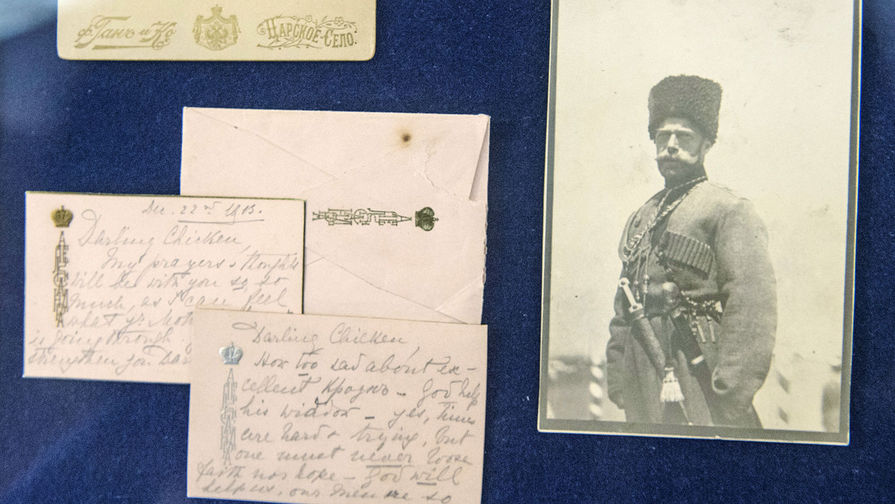 Ф. Ганъ и Ко
Царское-Село.
Dec. 22nd 1915.
Darling Chicken,
My prayers & thoughts
will be with you so so
much, as I can feel
what yr Mot
is going through
strengthen you
Darling Chicken,
How too sad about ex-
cellent – God help
his widow – yes, times
are hard & trying, but
one must never loose
faith nor hope – God will
help us, our men are so